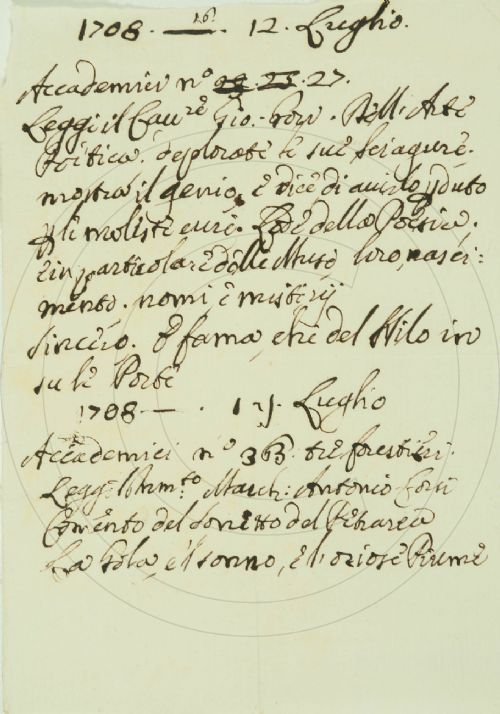 1708. — 12. Luglio.
Accademici n.º 22. 23. 27.
Leggi il Cav.re Gio:
Poetica. deplorate le sue sciagure.
mostra il genio, e dice di averlo pduto
p li moleste cure. Lode della Poesia.
e in particolare delle Muse loro, nasci:
mento. nomi, e misterij
Sincero. È fama, che del Nilo in
su le Porte
1708 — . Luglio
Accademici n.º 36. tre forestieri.
March: Antonio Corsi
Comento del sonetto del Petrarca
La Gola, e'l sonno, e l'oziose Piume